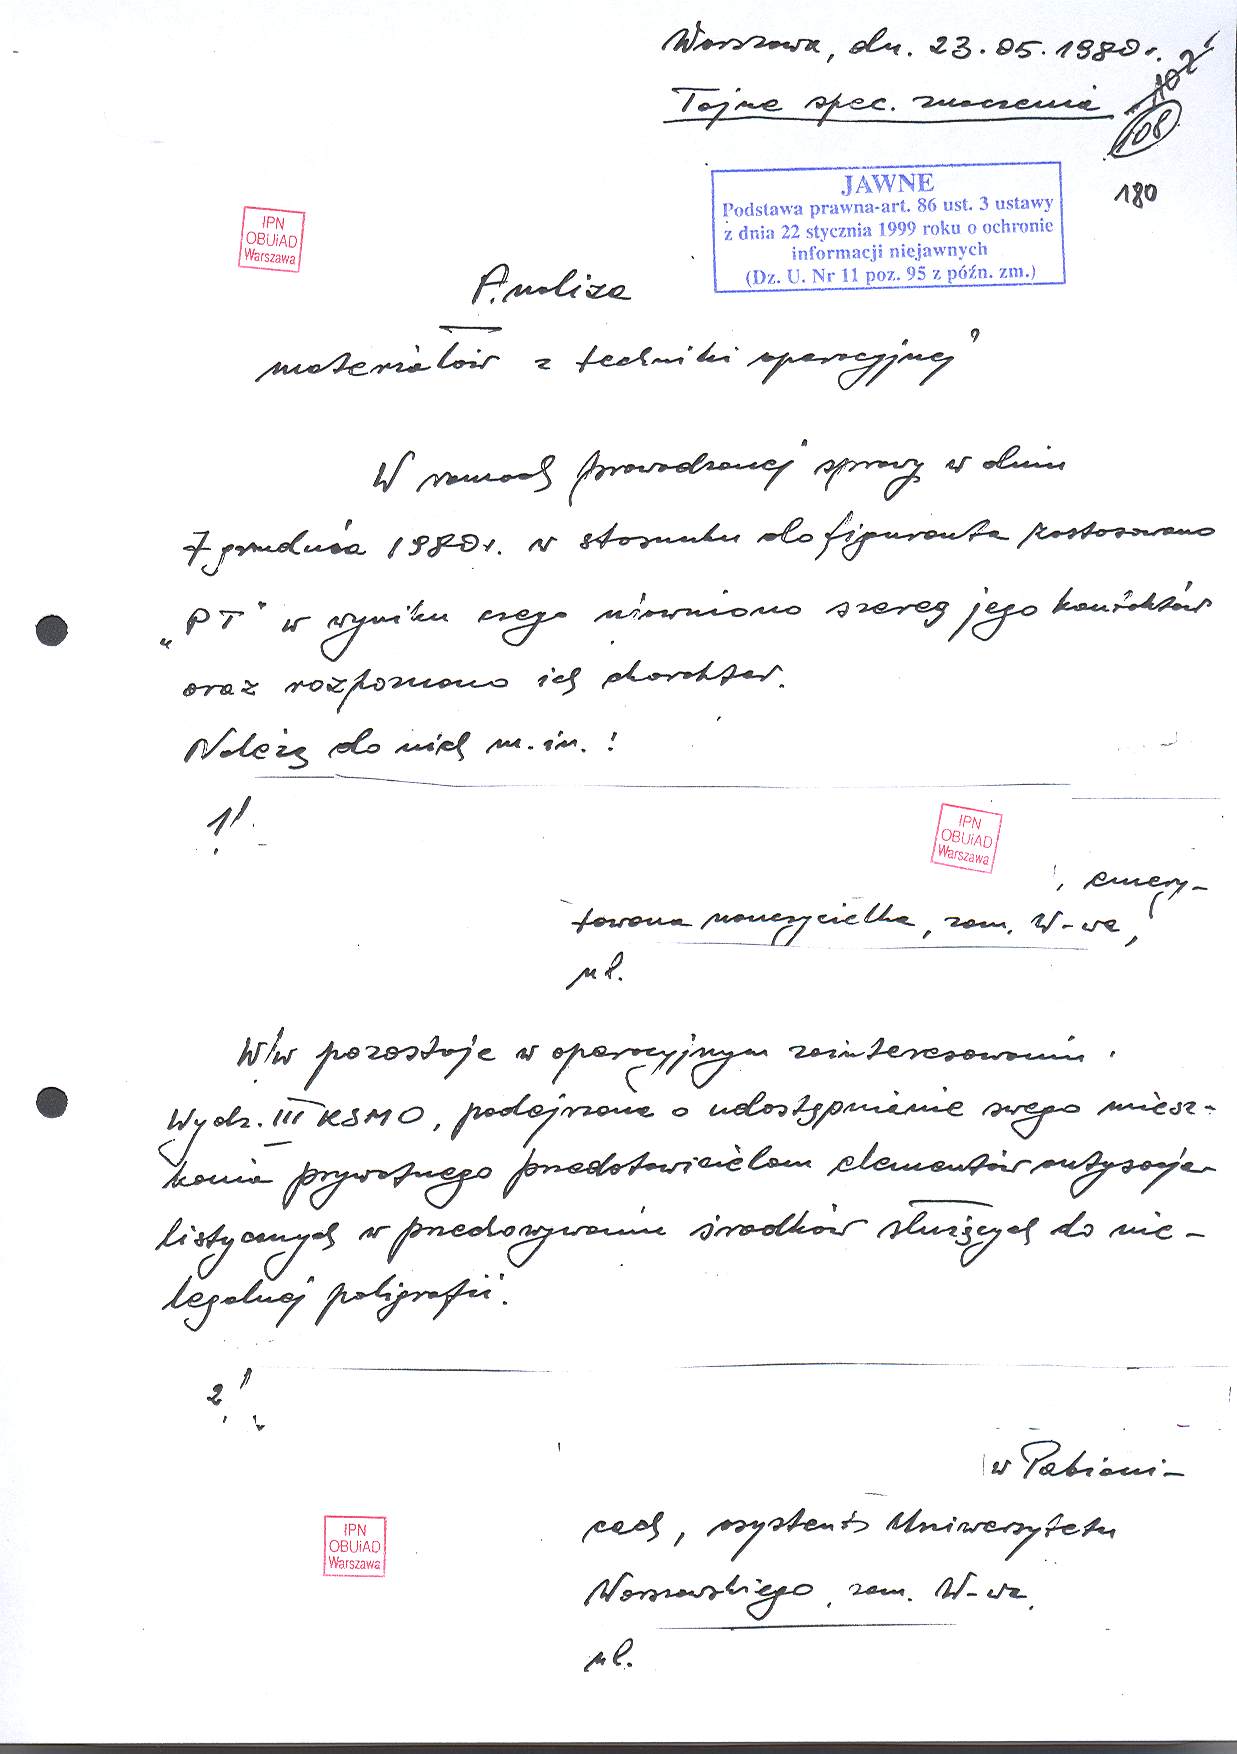 Warszawa, dn. 23.05.1980r.
Tajne spec. znaczenia
102
108
180
JAWNE
Podstawa prawna-art. 86 ust. 3 ustawy
z dnia 22 stycznia 1999 roku o ochronie
informacji niejawnych
(Dz. U. Nr 11 poz. 95 z późn. zm.)
IPN
OBUiAD
Warszawa
Analiza
materiałów z techniki operacyjnej
W ramach prowadzonej sprawy w dniu
7 grudnia 1980r. w stosunku do figuranta zastosowano
„PT" w wyniku czego ujawniono szereg jego kontaktów
oraz rozpoznano ich charakter.
Należą do nich m.in.:
1/
IPN
OBUiAD
Warszawa
, emery-
towana nauczycielka, zam. W-wa,
ul.
W/w pozostaje w operacyjnym zainteresowaniu
Wydz. III KSMO, podejrzana o udostępnianie swego miesz-
kania prywatnego przedstawicielom elementów antysocja-
listycznych w przechowywaniu środków służących do nie-
legalnej poligrafii.
2/
w Pabiani-
cach, asystent Uniwersytetu
Warszawskiego, zam. W-wa,
ul.
IPN
OBUiAD
Warszawa